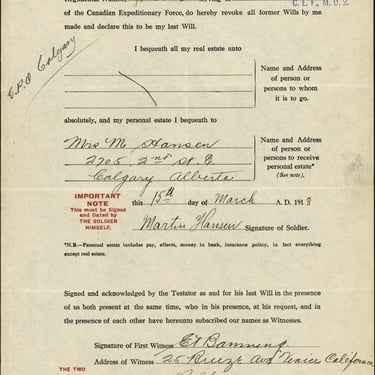 of the Canadian Expeditionary Force, do hereby revoke all former Wills by me
made and declare this to be my last Will.
C.E.F., M.D.2
G.P.O Calgary
I bequeath all my real estate unto
Name and Address
of person or
persons to whom
it is to go.
absolutely, and my personal estate I bequeath to
Mrs M. Hansen
2705 2nd St. E
Calgary Alberta
Name and
Address
of person or
persons to
receive personal
estate*
(See note).
IMPORTANT
NOTE
This must be Signed
and Dated by
THE SOLDIER
HIMSELF.
this 15th day of March A.D. 1918
Martin Hansen Signature of Soldier.
*N.B.—Personal estate includes pay, effects, money in bank, insurance policy, in fact everything
except real estate.
Signed and acknowledged by the Testator as and for his last Will in the presence of
us both present at the same time, who in his presence, at his request, and in the
presence of each other have hereunto subscribed our names as Witnesses.
Signature of First Witness
Address of Witness 25 Breeze Ave Venice California
THE TWO